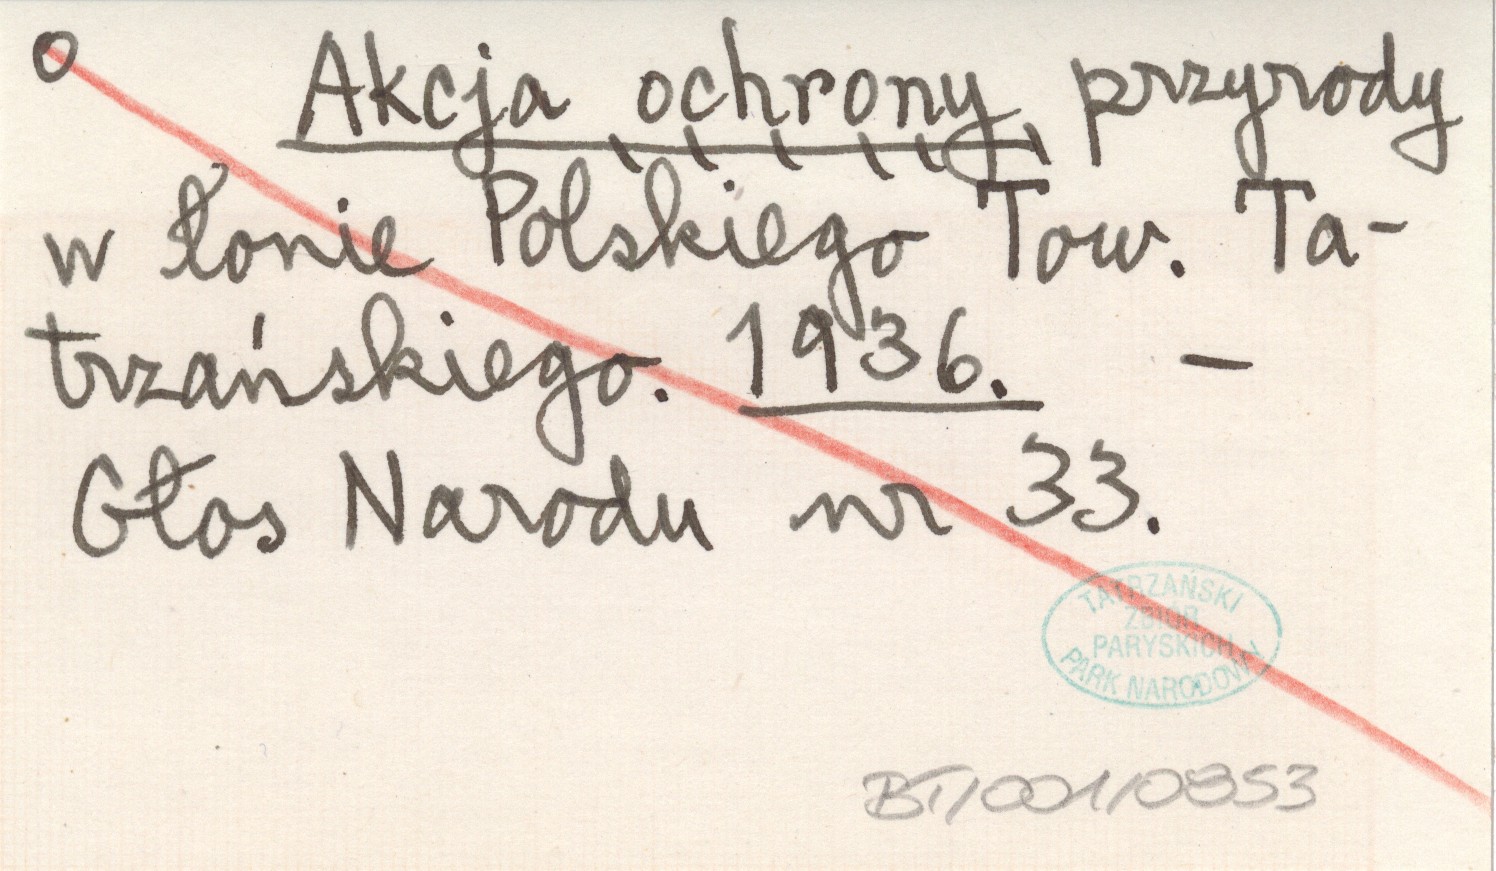 o Akcja ochrony przyrody
w łonie Polskiego Tow. Ta-
trzańskiego. 1936. —
Głos Narodu nr 33.
TATRZAŃSKI
ZBIÓR
PARYSKICH
PARK NARODOWY
BT/001/0853